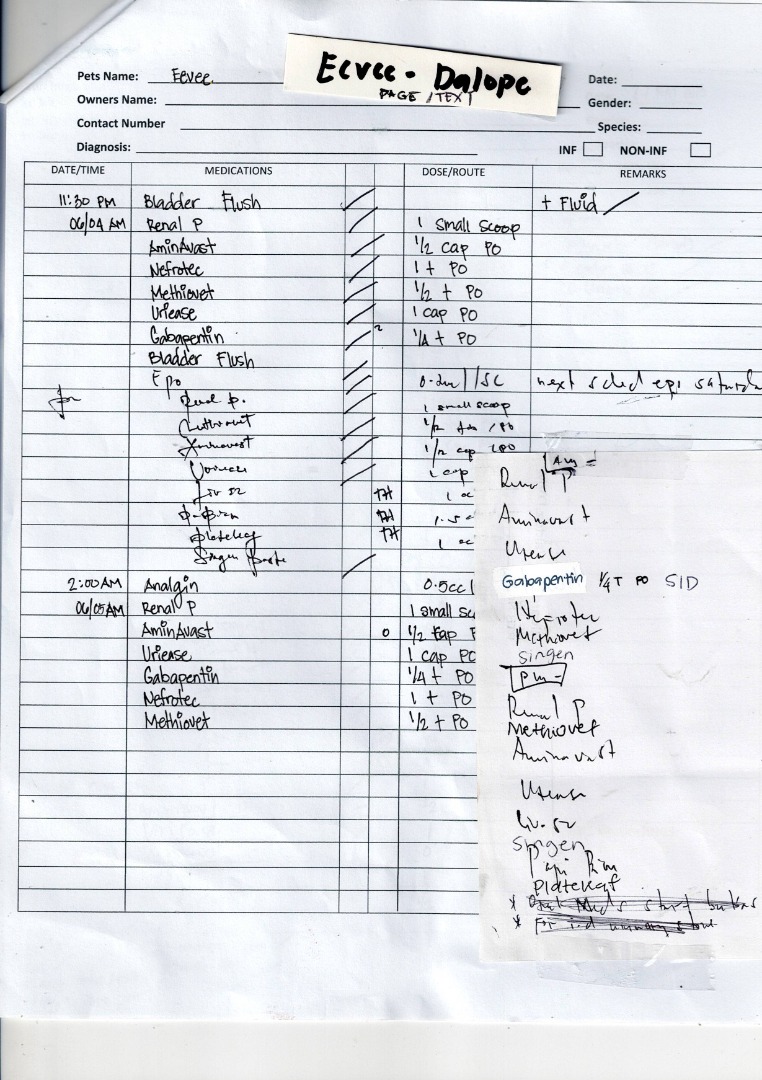 Eevee - Dalope
PAGE / TEXT
Pets Name: Eevee
Date:
Owners Name:
Gender:
Contact Number
Species:
Diagnosis:
INF NON-INF
DATE/TIME MEDICATIONS DOSE/ROUTE REMARKS
11:30 PM Bladder Flush + Fluid
06/04 AM Renal P 1 small scoop
AminAvast 1/2 cap PO
Nefrotec 1 + PO
Methiovet 1/2 + PO
Uriease 1 cap PO
Gabapentin 2 1/4 + PO
Bladder Flush
Epo 0.2ml//SC next sched epi saturda
Renal P. 1 small scoop
1/2
Aminavast 1/2 cap
1 cap
Liv 52 1
1.5
Platekaf 1
Singen Paste
2:00 AM Analgin 0.5cc
06/05 AM Renal P 1 small sc
AminAvast 0 1/2 cap P
Uriease 1 cap PO
Gabapentin 1/4 + PO
Nefrotec 1 + PO
Methiovet 1/2 + PO
Am =
Renal P
Aminavast
Urease
Gabapentin 1/4 T PO SID
Nefrotec
Methiovet
Singen
Pm -
Renal P
Methiovet
Aminavast
Urease
Liv. 52
Singen
Platekaf